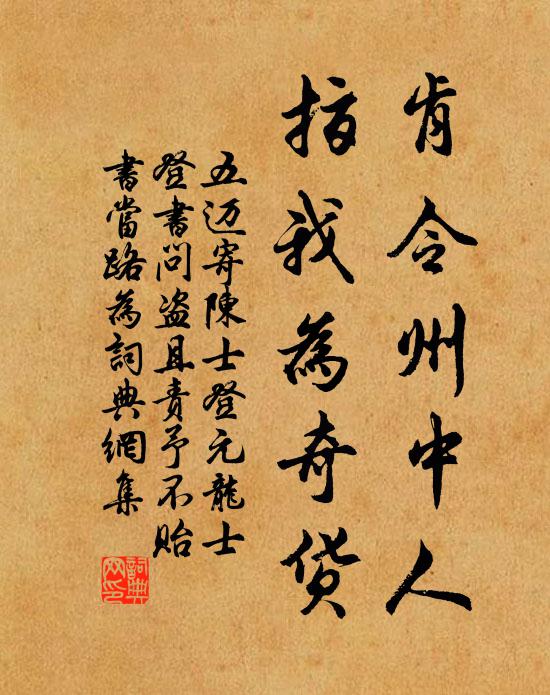 肯令州中人
指我為奇货
五迈寄陳士登元龍士
登書問盗且責予不貽
書當路為詞典網集
詞典
网印